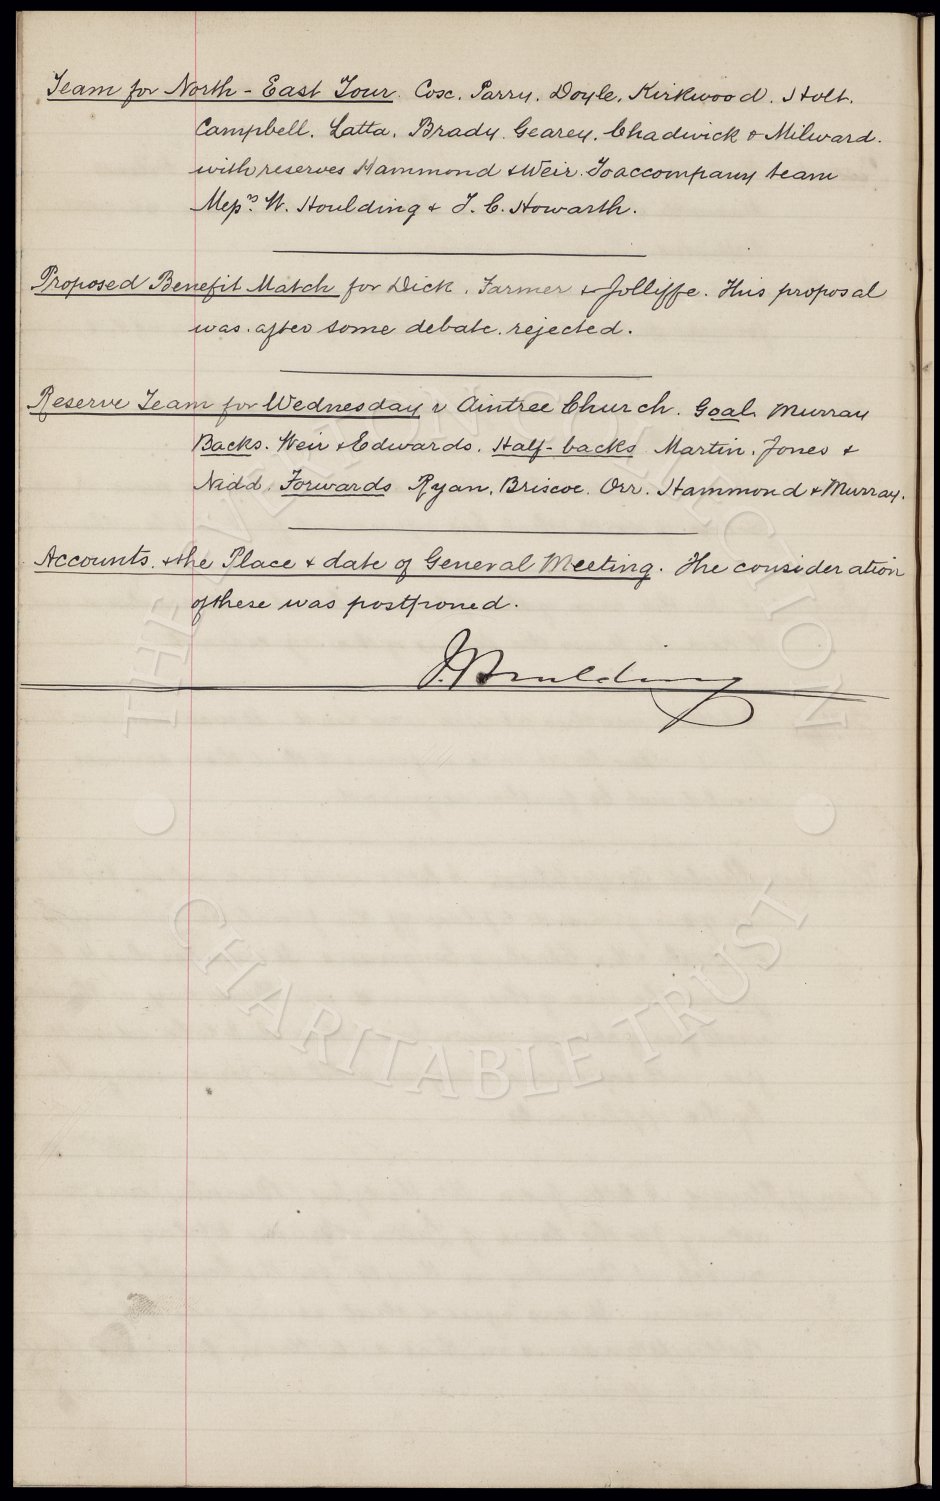 Team for North-East Tour. Cox. Parry. Doyle. Kirkwood. Holt.
Campbell. Latta. Brady. Gearey. Chadwick & Milward.
with reserves Hammond & Weir. To accompany team
Messrs. W. Houlding & J. C. Howarth.
Proposed Benefit Match for Dick, Farmer & Jolliffe. This proposal
was, after some debate, rejected.
Reserve Team for Wednesday v Aintree Church. Goal. Murray
Backs. Weir & Edwards. Half-backs Martin. Jones &
Nidd. Forwards Ryan. Briscoe. Orr. Hammond & Murray.
Accounts. & the Place & date of General Meeting. The consideration
of these was postponed.
J. Houlding
THE EVERTON COLLECTION
CHARITABLE TRUST